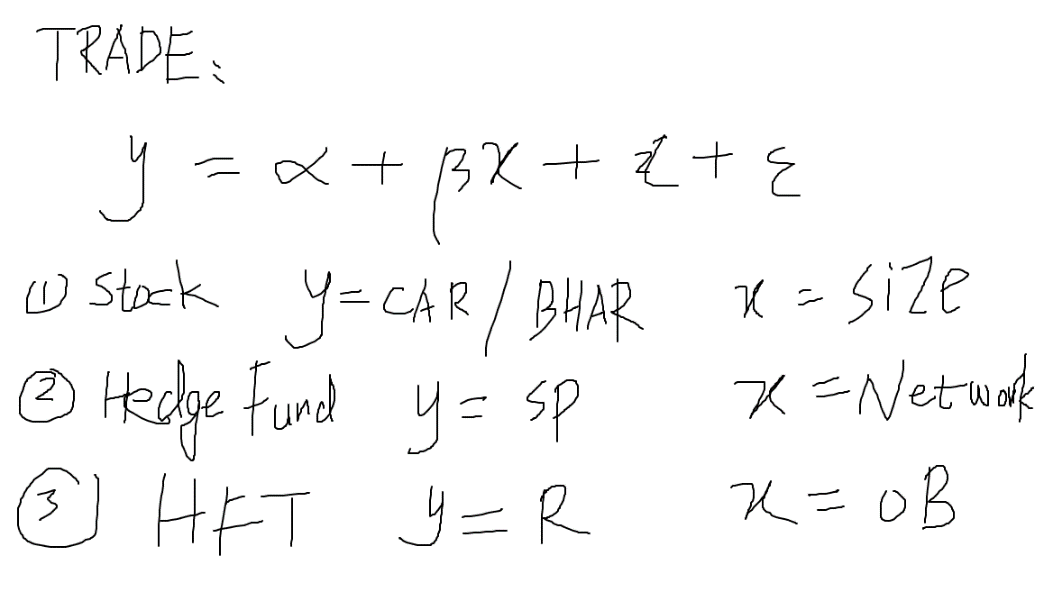 TRADE:
y = α + βx + z + ε
(1) Stock y = CAR / BHAR x = size
② Hedge Fund y = SP x = Network
③ HFT y = R x = OB